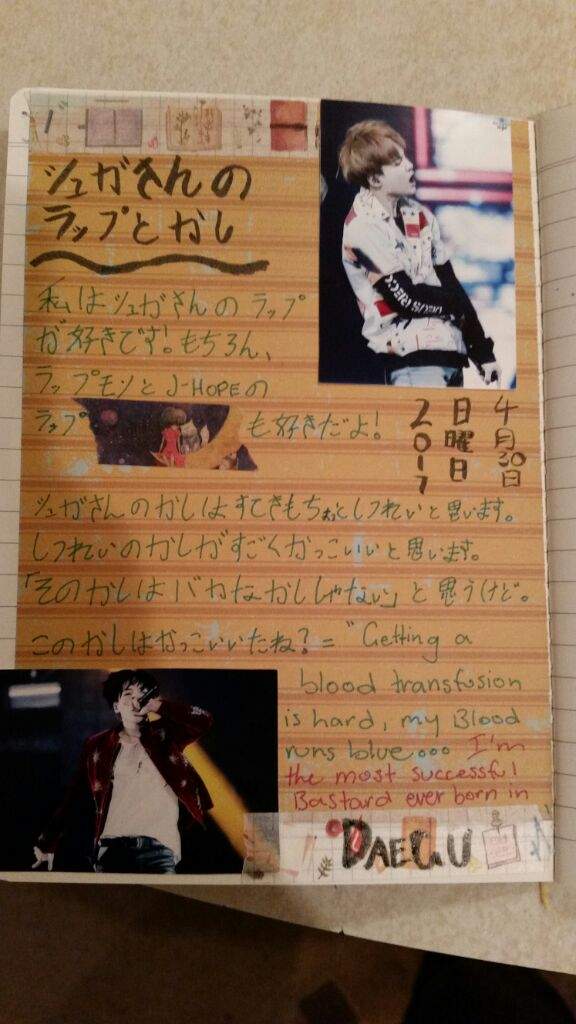 シュガさんの
ラップとかし
私はシュガさんのラップ
が好きです!もちろん、
ラップモンとJ-HOPEの
ラップ も好きだよ!
4月30日
日曜日
2017
シュガさんのかしはすてきもちょとしつれいと思います。
しつれいのかしがすごくかっこいいと思います。
「そのかしはバカなかしじゃない」と思うけど。
このかしはかっこいいたね?="Getting a
blood transfusion
is hard, my Blood
runs blue... I'm
the most successful
Bastard ever born in
DAEGU